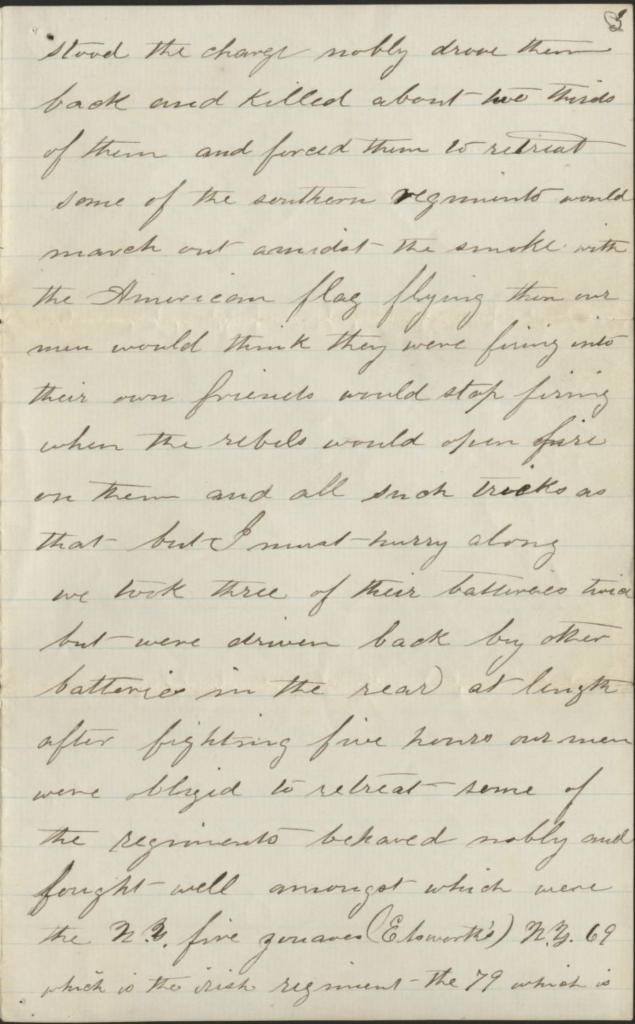 3
stood the charge nobly drove them
back and killed about two thirds
of them and forced them to retreat
some of the southern regiments would
march out amidst the smoke with
the American flag flying then our
men would think they were firing into
their own friends would stop firing
when the rebels would open fire
on them and all such tricks as
that but I must hurry along
we took three of their batteries twice
but were driven back by other
batteries in the rear at length
after fighting five hours our men
were obliged to retreat some of
the regiments behaved nobly and
fought well amongst which were
the N.Y. fire zouaves (Elsworth's) N.Y. 69
which is the irish regiment the 79 which is